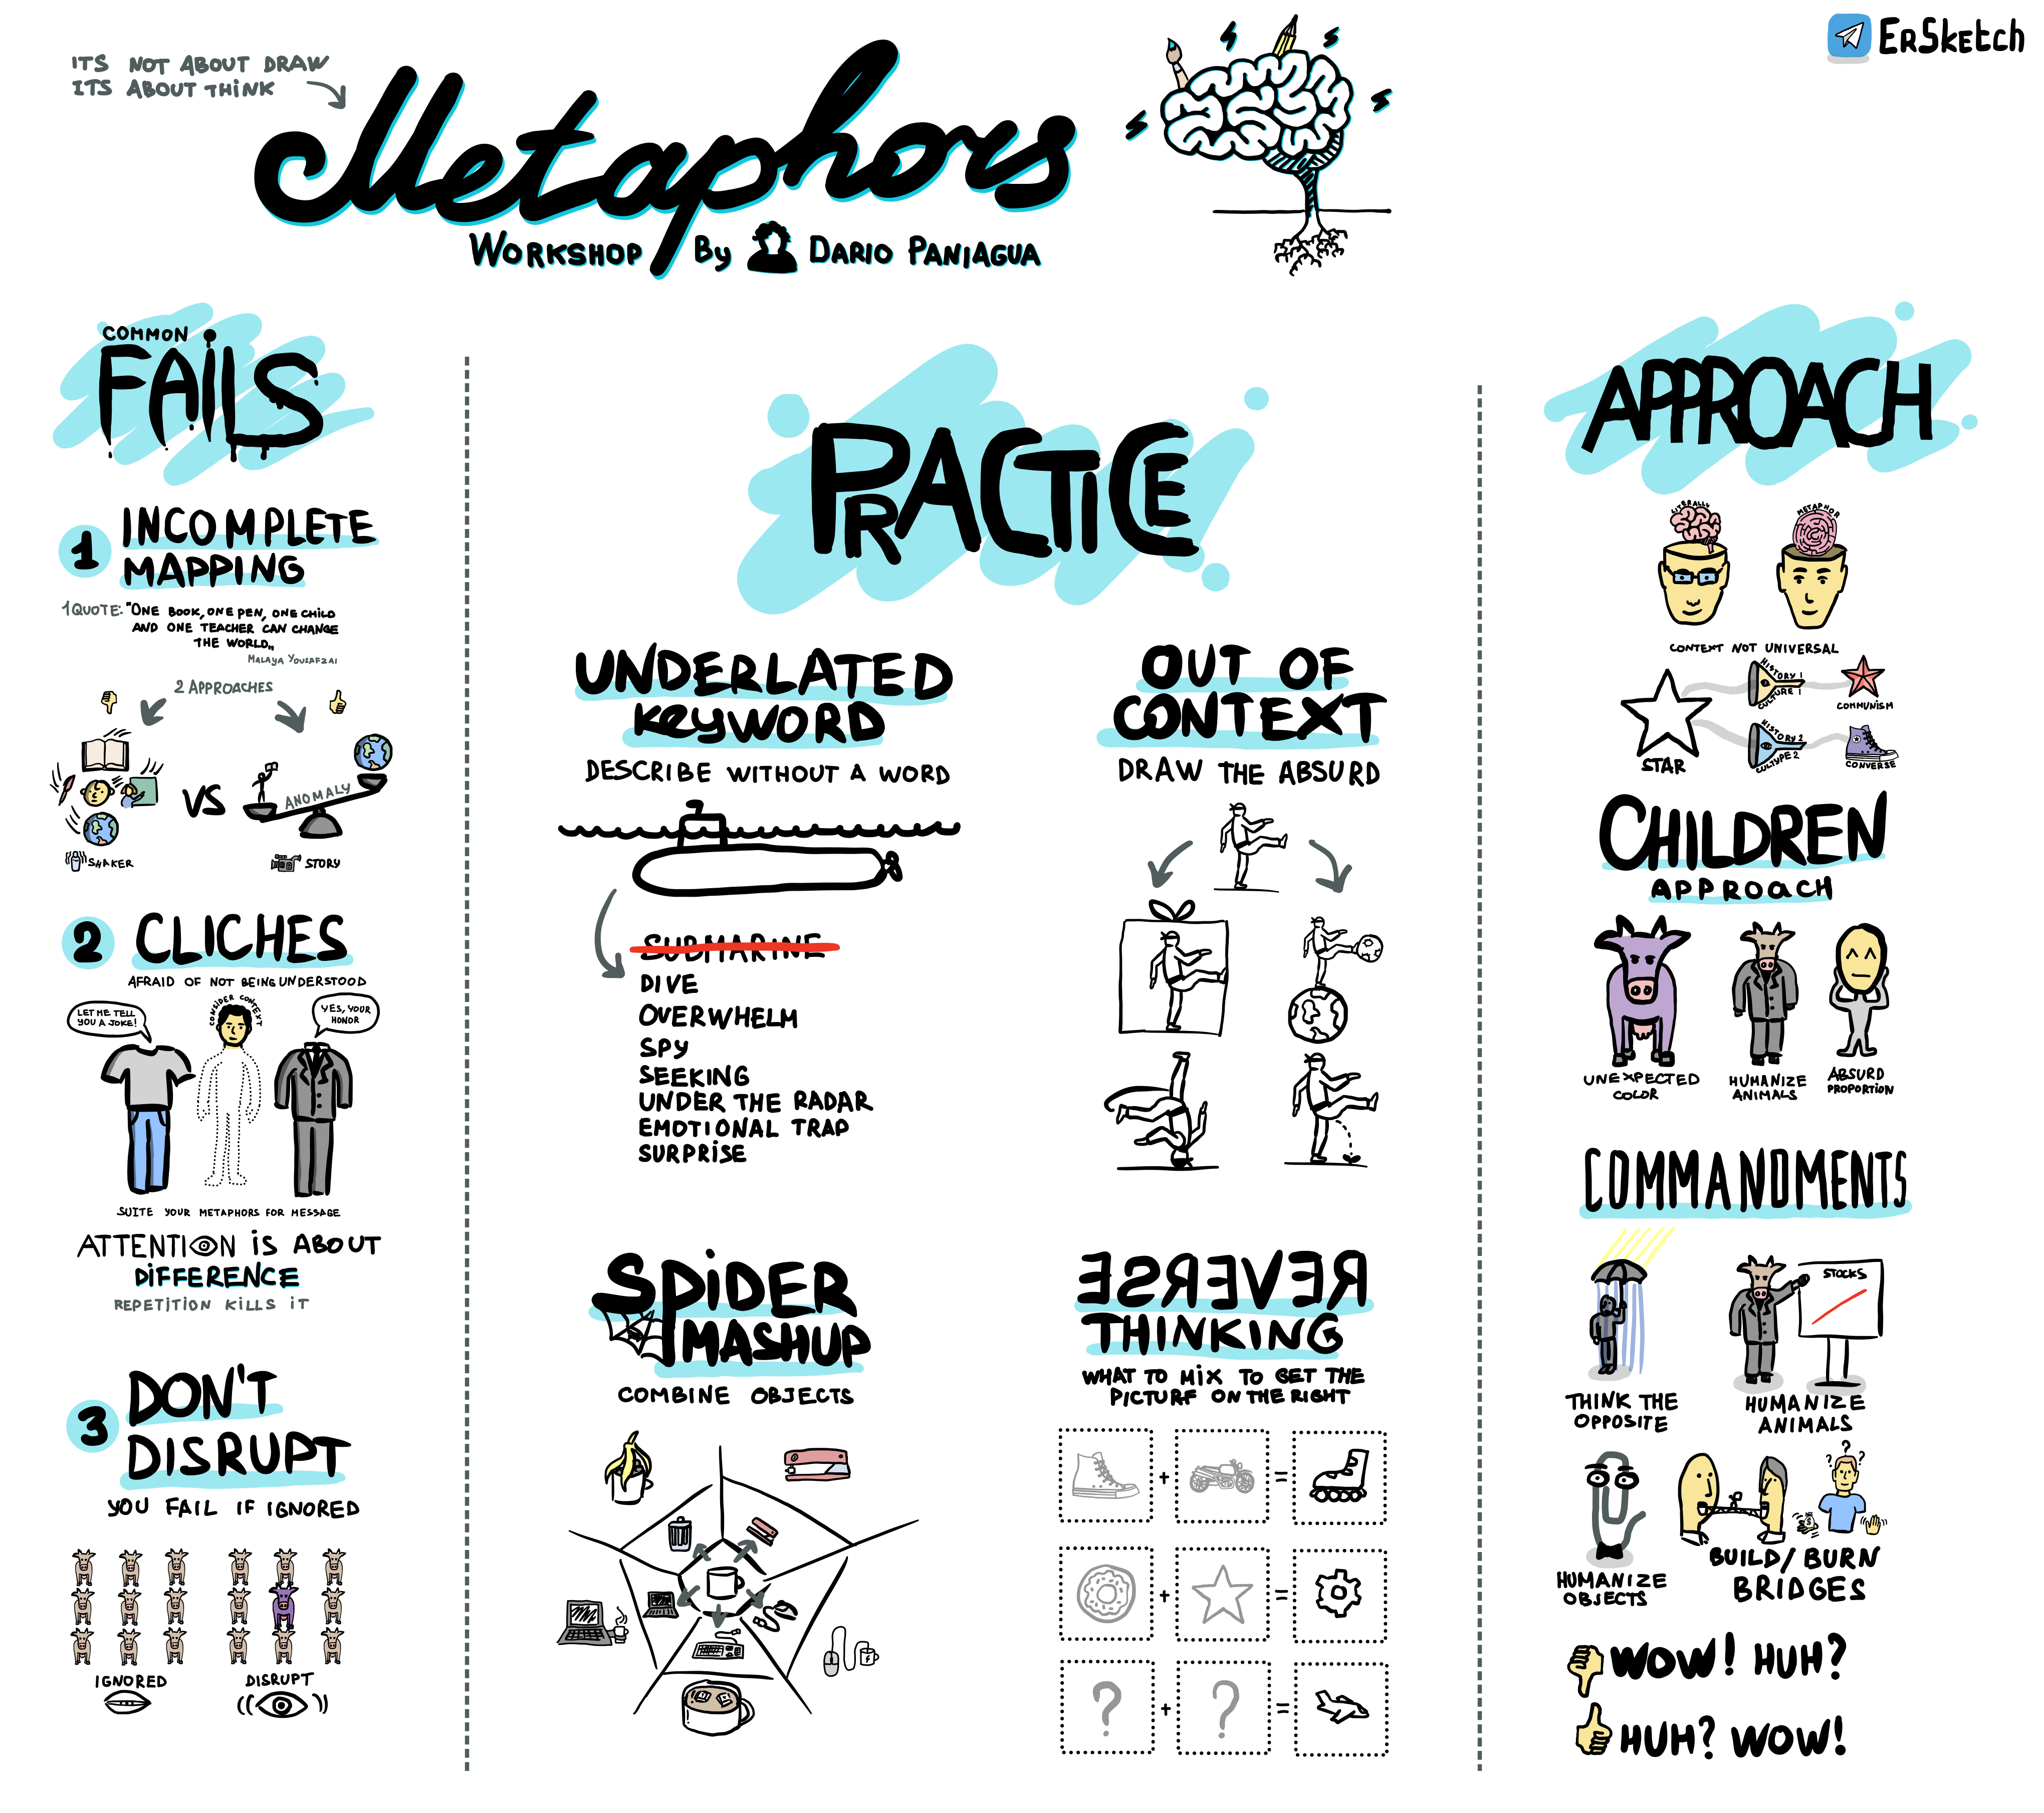 ITS NOT ABOUT DRAW
ITS ABOUT THINK
Metaphors
WORKSHOP By DARIO PANIAGUA
ERSKETCH
COMMON
FAILS
1 INCOMPLETE
MAPPING
1 QUOTE: "ONE BOOK, ONE PEN, ONE CHILD
AND ONE TEACHER CAN CHANGE
THE WORLD„
MALAYA YOUSAFZAI
2 APPROACHES
VS
ANOMALY
SHAKER
STORY
2 CLICHES
AFRAID OF NOT BEING UNDERSTOOD
LET ME TELL
YOU A JOKE!
CONSIDER CONTEXT
YES, YOUR
HONOR
SUITE YOUR METAPHORS FOR MESSAGE
ATTENTION IS ABOUT
DIFFERENCE
REPETITION KILLS IT
3 DON'T
DISRUPT
YOU FAIL IF IGNORED
IGNORED
DISRUPT
PRACTICE
UNDERLATED
KEYWORD
DESCRIBE WITHOUT A WORD
SUBMARINE
DIVE
OVERWHELM
SPY
SEEKING
UNDER THE RADAR
EMOTIONAL TRAP
SURPRISE
OUT OF
CONTEXT
DRAW THE ABSURD
SPIDER
MASHUP
COMBINE OBJECTS
REVERSE
THINKING
WHAT TO MIX TO GET THE
PICTURE ON THE RIGHT
+ =
+ =
? + ? =
APPROACH
LITERALLY
METAPHOR
CONTEXT NOT UNIVERSAL
STAR
HISTORY 1
CULTURE 1
COMMUNISM
HISTORY 2
CULTYPE 2
CONVERSE
CHILDREN
APPROACH
UNEXPECTED
COLOR
HUMANIZE
ANIMALS
ABSURD
PROPORTION
COMMANDMENTS
STOCKS
THINK THE
OPPOSITE
HUMANIZE
ANIMALS
? ? ?
HUMANIZE
OBJECTS
BUILD/BURN
BRIDGES
WOW! HUH?
HUH? WOW!